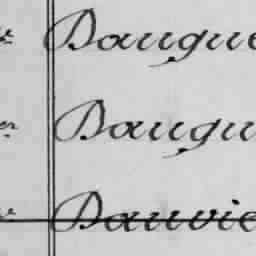 Daugue
Daugu
Dauvie